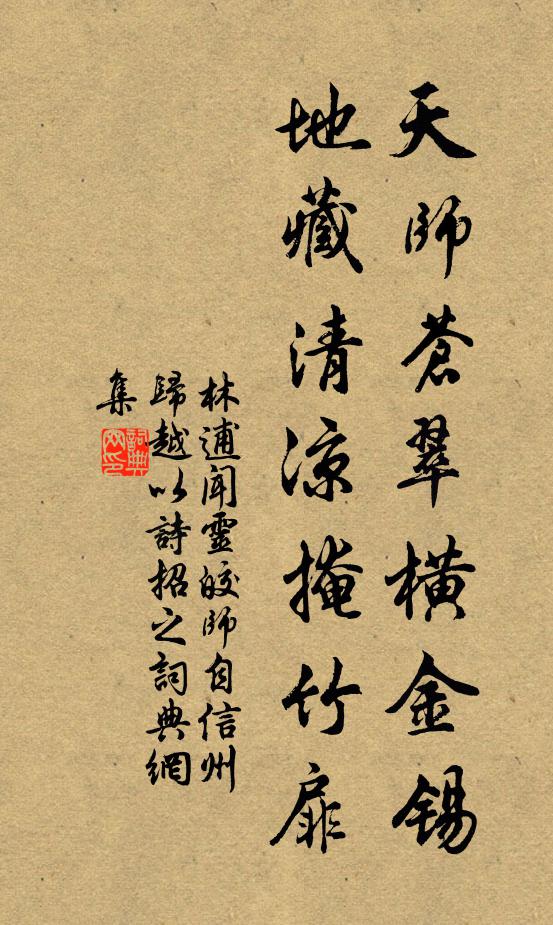 天師蒼翠橫金錫
地藏清涼掩竹扉
林逋聞靈皎師自信州
歸越以詩招之詞典網
集
詞典网印